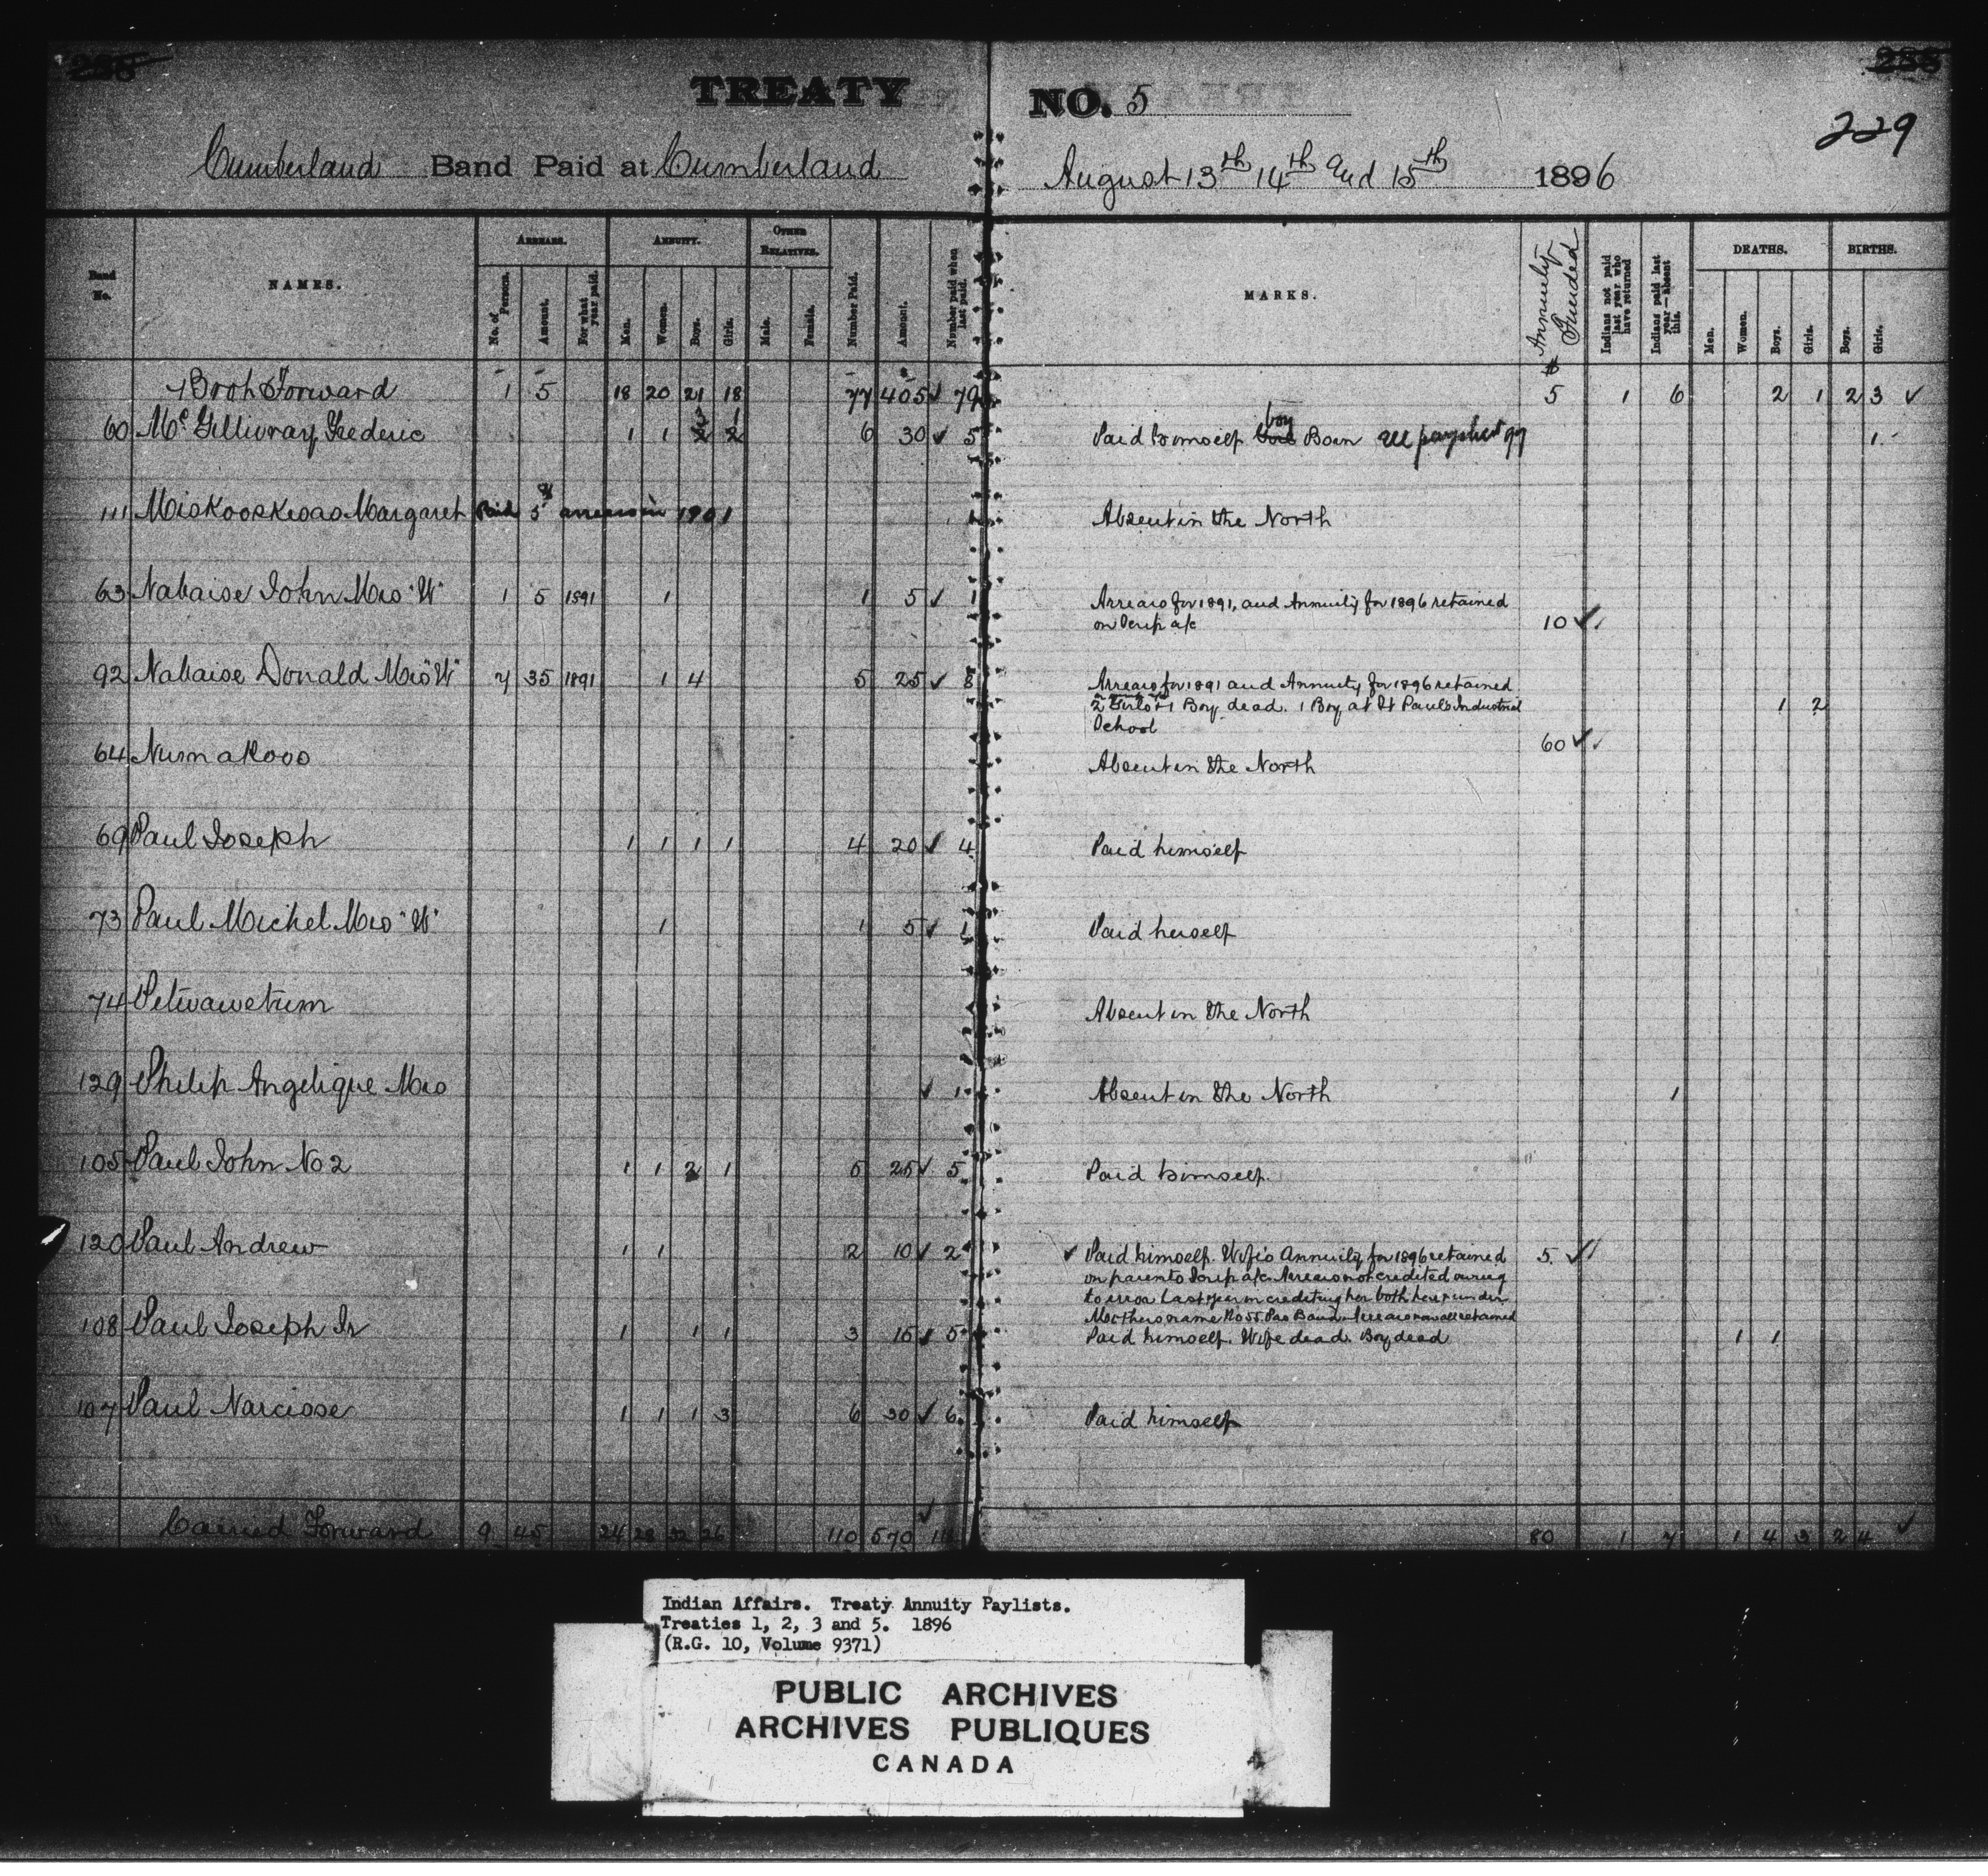 TREATY NO. 5
229
Cumberland Band Paid at Cumberland August 13th 14th and 15th 1896
Band No. NAMES. ARREARS. No. of Persons. Amount. For what year paid. ANNUITY. Men. Women. Boys. Girls. OTHER RELATIVES. Male. Female. Number Paid. Amount. Number paid when last paid. MARKS. Annuity Funded Indians not paid last year who have returned Indians paid last year—absent this. DEATHS. Men. Women. Boys. Girls. BIRTHS. Boys. Girls.
Brot Forward 1 5 18 20 21 18 77 405 ✓ 79 5 1 6 2 1 2 3 ✓
60 McGillivray Frederic 1 1 6 30 ✓ 5 Paid himself boy Born all paysheet 97 1
111 Margaret Paid 5 arrears in 1901 1 Absent in the North
63 Nabaise John Mrs "W" 1 5 1891 1 1 5 ✓ 1 Arrears for 1891, and Annuity for 1896 retained
on Scrip a/c 10 ✓
92 Nabaise Donald Mrs "W" 7 35 1891 1 4 5 25 ✓ 8 Arrears for 1891 and Annuity for 1896 retained
2 Girls + 1 Boy dead. 1 Boy at St Pauls Industrial 1 2
School 60 ✓
64 Numakoos Absent in the North
69 Paul Joseph 1 1 1 1 4 20 ✓ 4 Paid himself
73 Paul Michel Mrs "W" 1 1 5 ✓ 1 Paid herself
74 Petwawetum Absent in the North
129 Philip Angelique Mrs ✓ 1 Absent in the North 1
105 Paul John No 2 1 1 2 1 5 25 ✓ 5 Paid himself.
120 Paul Andrew 1 1 2 10 ✓ 2 ✓ Paid himself. Wife's Annuity for 1896 retained 5 ✓
on parents Scrip a/c. Arrears not credited owing
to error last year in crediting her both here & under
Mothers name No 55 Pas Band. Arrears now all retained
108 Paul Joseph Jr 1 1 1 3 15 ✓ 5 Paid himself. Wife dead. Boy dead 1 1
107 Paul Narcisse 1 1 1 3 6 30 ✓ 6 Paid himself
Carried Forward 9 45 24 28 32 26 110 570 ✓ 80 1 7 1 4 3 2 4 ✓
Indian Affairs. Treaty Annuity Paylists.
Treaties 1, 2, 3 and 5. 1896
(R.G. 10, Volume 9371)
PUBLIC ARCHIVES
ARCHIVES PUBLIQUES
CANADA